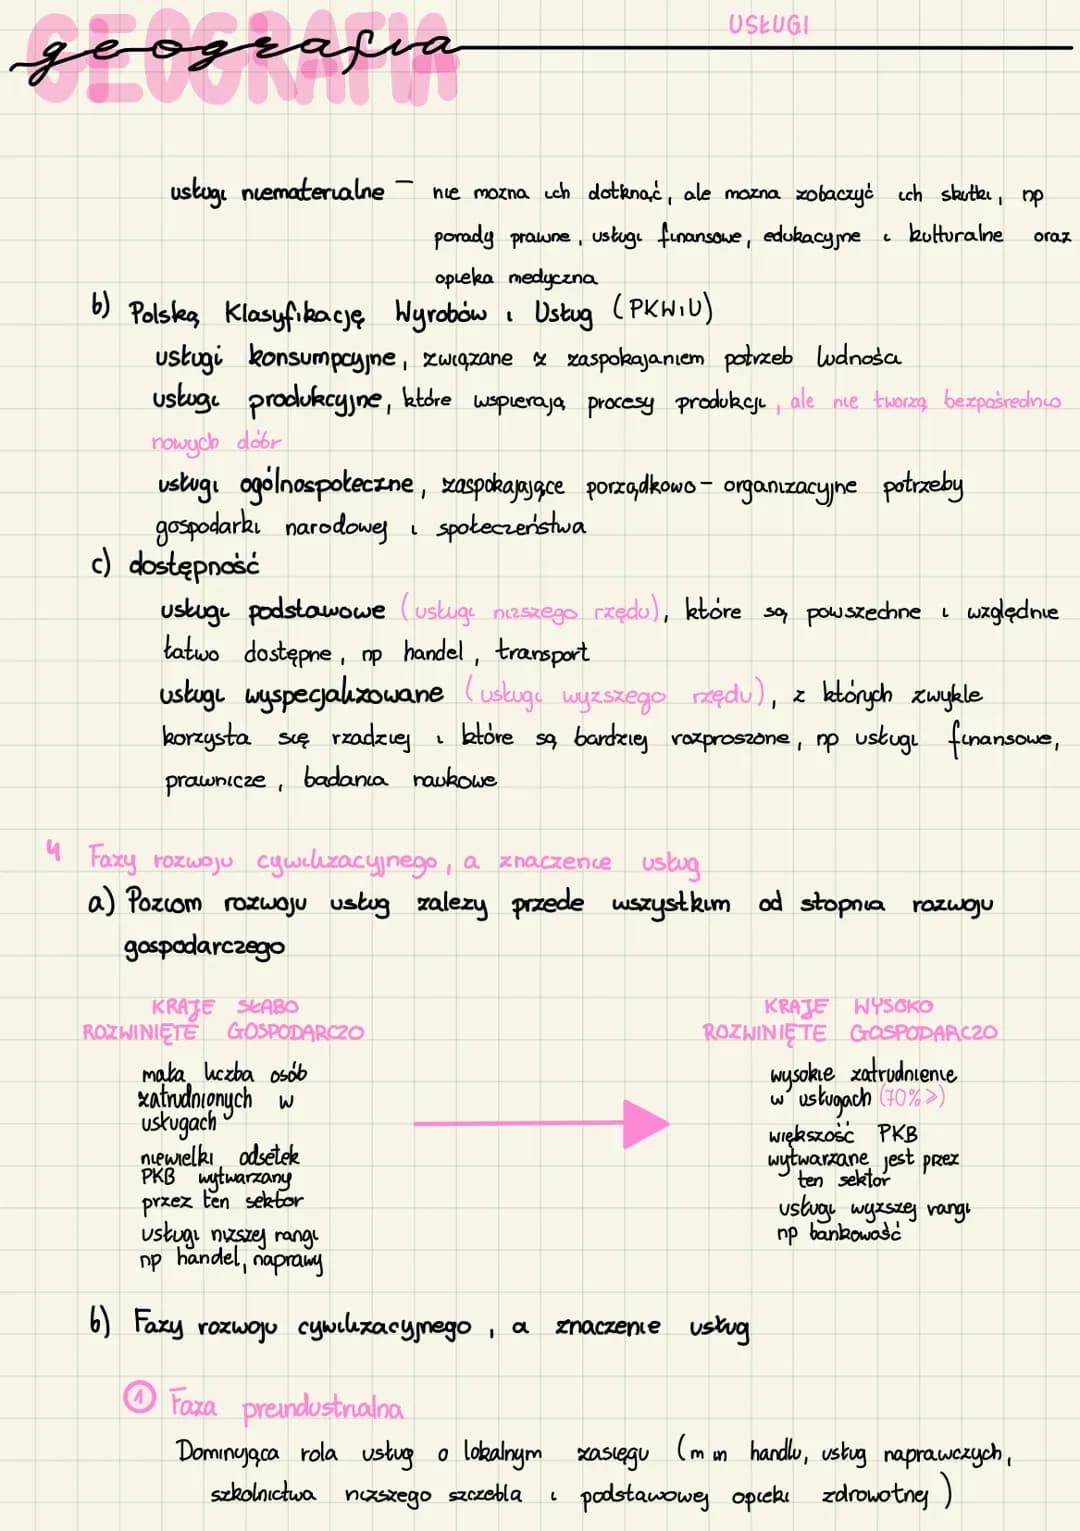 USŁUGI
GEOGRAFIA
geografia
usługi niematerialne – nie można ich dotknąć, ale można zobaczyć ich skutki, np
porady prawne, usługi finansowe, edukacyjne i kulturalne oraz
opieka medyczna
b) Polską Klasyfikację Wyrobów i Usług (PKWiU)
usługi konsumpcyjne, związane z zaspokajaniem potrzeb ludności
usługi produkcyjne, które wspierają procesy produkcji, ale nie tworzą bezpośrednio
nowych dóbr
usługi ogólnospołeczne, zaspokajające porządkowo – organizacyjne potrzeby
gospodarki narodowej i społeczeństwa
c) dostępność
usługi podstawowe (usługi niższego rzędu), które są powszechne i względnie
łatwo dostępne, np handel, transport
usługi wyspecjalizowane (usługi wyższego rzędu), z których zwykle
korzysta się rzadziej i które są bardziej rozproszone, np usługi finansowe,
prawnicze, badania naukowe
4 Fazy rozwoju cywilizacyjnego, a znaczenie usług
a) Poziom rozwoju usług zależy przede wszystkim od stopnia rozwoju
gospodarczego
KRAJE SŁABO
ROZWINIĘTE GOSPODARCZO
mała liczba osób
zatrudnionych w
usługach
niewielki odsetek
PKB wytwarzany
przez ten sektor
usługi niższej rangi
np handel, naprawy
KRAJE WYSOKO
ROZWINIĘTE GOSPODARCZO
wysokie zatrudnienie
w usługach (70%>)
większość PKB
wytwarzane jest przez
ten sektor
usługi wyższej rangi
np bankowość
b) Fazy rozwoju cywilizacyjnego, a znaczenie usług
1 Faza preindustrialna
Dominująca rola usług o lokalnym zasięgu (m in handlu, usług naprawczych,
szkolnictwa niższego szczebla i podstawowej opieki zdrowotnej)